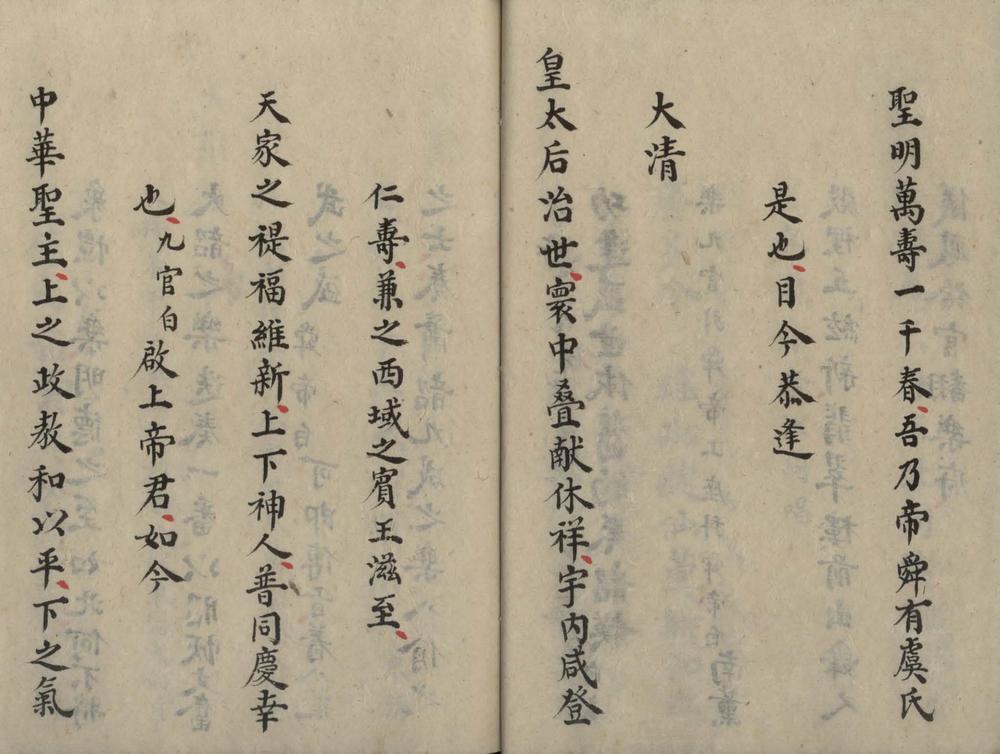 聖明萬壽一千春、吾乃帝舜有虞氏
是也、目今恭逢
大清
皇太后治世、寰中叠献休祥、宇内咸登
仁壽、兼之西域之賓玉滋至、
天家之禔福維新、上下神人、普同慶幸
也、九官白啟上帝君、如今
中華聖主、上之政教和以平、下之氣